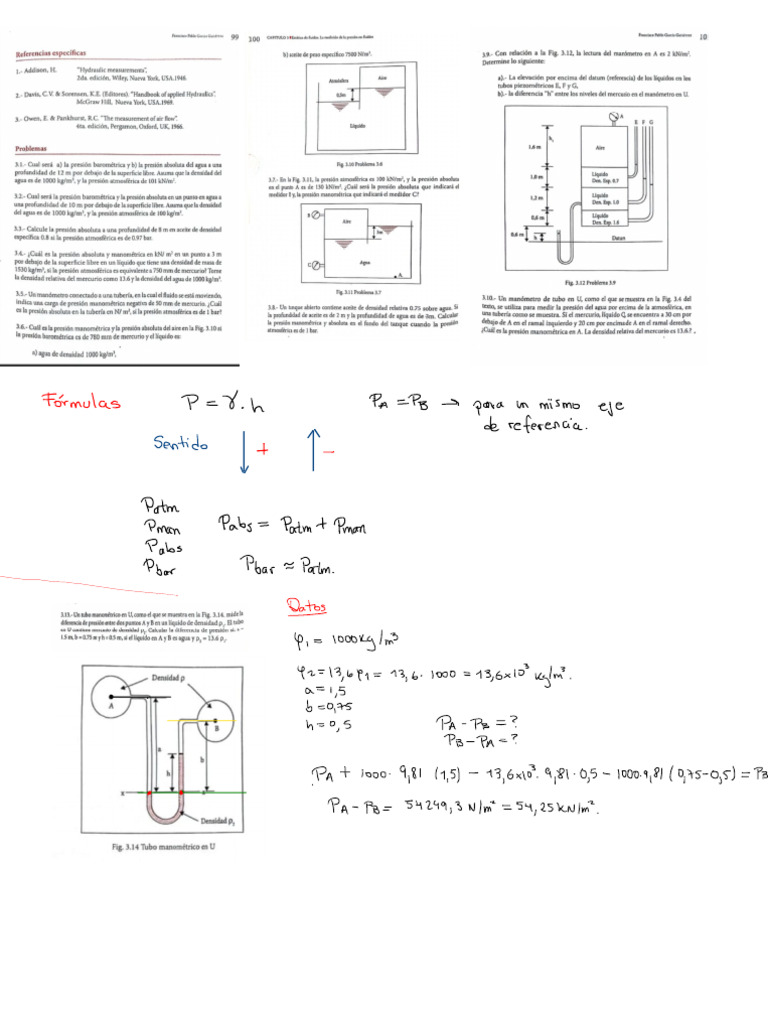 Francisco Pablo García Gutiérrez 99
Referencias específicas
1.- Addison, H. "Hydraulic measurements",
2da. edición, Wiley, Nueva York, USA.1946.
2.- Davis, C.V. & Sorensen, K.E. (Editores). "Handbook of applied Hydraulics".
McGraw Hill, Nueva York, USA.1969.
3.- Owen, E. & Pankhurst, R.C. "The measurement of air flow".
4ta. edición, Pergamon, Oxford, UK, 1966.
Problemas
3.1.- Cuál será a) la presión barométrica y b) la presión absoluta del agua a una
profundidad de 12 m por debajo de la superficie libre. Asuma que la densidad del
agua es de 1000 kg/m³, y la presión atmosférica de 101 kN/m².
3.2.- Cuál será la presión barométrica y la presión absoluta en un punto en agua a
una profundidad de 10 m por debajo de la superficie libre. Asuma que la densidad
del agua es de 1000 kg/m³, y la presión atmosférica de 100 kg/m².
3.3.- Calcule la presión absoluta a una profundidad de 8 m en aceite de densidad
específica 0.8 si la presión atmosférica es de 0.97 bar.
3.4.- ¿Cuál es la presión absoluta y manométrica en kN/ m² en un punto a 3 m
por debajo de la superficie libre en un líquido que tiene una densidad de masa de
1530 kg/m³, si la presión atmosférica es equivalente a 750 mm de mercurio? Tome
la densidad relativa del mercurio como 13.6 y la densidad del agua de 1000 kg/m³.
3.5.- Un manómetro conectado a una tubería, en la cual el fluido se está moviendo,
indica una carga de presión manométrica negativa de 50 mm de mercurio. ¿Cuál
es la presión absoluta en la tubería en N/ m², si la presión atmosférica es de 1 bar?
3.6.- Cuál es la presión manométrica y la presión absoluta del aire en la Fig. 3.10 si
la presión barométrica es de 760 mm de mercurio y el líquido es:
a) agua de densidad 1000 kg/m³,
100 CAPITULO 3 Estática de fluidos. La medición de la presión en fluidos
b) aceite de peso específico 7500 N/m³.
Atmósfera
Aire
0,5m
Líquido
Fig. 3.10 Problema 3.6
3.7.- En la Fig. 3.11, la presión atmosférica es 100 kN/m², y la presión absoluta
en el punto A es de 150 kN/m². ¿Cuál será la presión absoluta que indicará el
medidor B y, la presión manométrica que indicará el medidor C?
B
Aire
3m
C
Agua
A
Fig. 3.11 Problema 3.7
3.8.- Un tanque abierto contiene aceite de densidad relativa 0.75 sobre agua. Si
la profundidad de aceite es de 2 m y la profundidad de agua es de 3m. Calcular
la presión manométrica y absoluta en el fondo del tanque cuando la presión
atmosférica es de 1 bar.
Francisco Pablo García Gutiérrez 10
3.9.- Con relación a la Fig. 3.12, la lectura del manómetro en A es 2 kN/m².
Determine lo siguiente:
a).- La elevación por encima del datum (referencia) de los líquidos en los
tubos piezométricos E, F y G,
b).- la diferencia "h" entre los niveles del mercurio en el manómetro en U.
A
E F G
Aire
1,6 m
Líquido
Den. Esp. 0.7
1,8 m
Líquido
Den. Esp. 1.0
1,2 m
Líquido
Den. Esp. 1.6
0,6 m
0,6 m
h
Datum
Fig. 3.12 Problema 3.9
3.10.- Un manómetro de tubo en U, como el que se muestra en la Fig. 3.4 del
texto, se utiliza para medir la presión del agua por encima de la atmosférica, en
una tubería como se muestra. Si el mercurio, líquido Q, se encuentra a 30 cm por
debajo de A en el ramal izquierdo y 20 cm por encimade A en el ramal derecho.
¿Cuál es la presión manométrica en A. La densidad relativa del mercurio es 13.6? .
Fórmulas P = γ . h PA = PB → para un mismo eje
de referencia.
Sentido + −
Patm
Pman Pabs = Patm + Pman
Pabs
Pbar Pbar ≈ Patm.
3.13.- Un tubo manométrico en U, como el que se muestra en la Fig. 3.14, mide la
diferencia de presión entre dos puntos A y B en un líquido de densidad ρ1. El tubo
en U contiene mercurio de densidad ρ2. Calcular la diferencia de presión si a =
1.5 m, b = 0.75 m y h = 0.5 m, si el líquido en A y B es agua y ρ2 = 13.6 ρ1.
Densidad ρ
A
B
a
b
h
x
Densidad ρ2
Fig. 3.14 Tubo manométrico en U
Datos
φ1 = 1000 kg/m³
φ2 = 13,6 φ1 = 13,6 . 1000 = 13,6x10³ kg/m³.
a = 1,5
b = 0,75
h = 0,5
PA - PB = ?
PB - PA = ?
PA + 1000 . 9,81 (1,5) - 13,6x10³ . 9,81 . 0,5 - 1000.9,81 (0,75-0,5) = PB
PA - PB = 54249,3 N/m² = 54,25 kN/m².